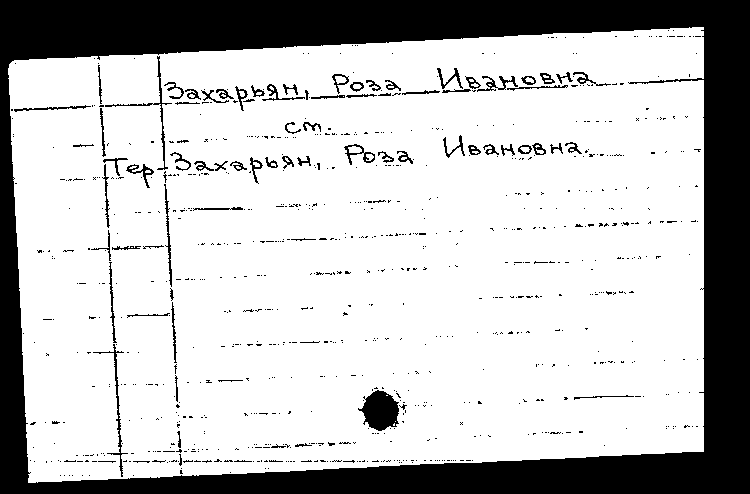 Захарьян, Роза Ивановна
ст.
Тер-Захарьян, Роза Ивановна.